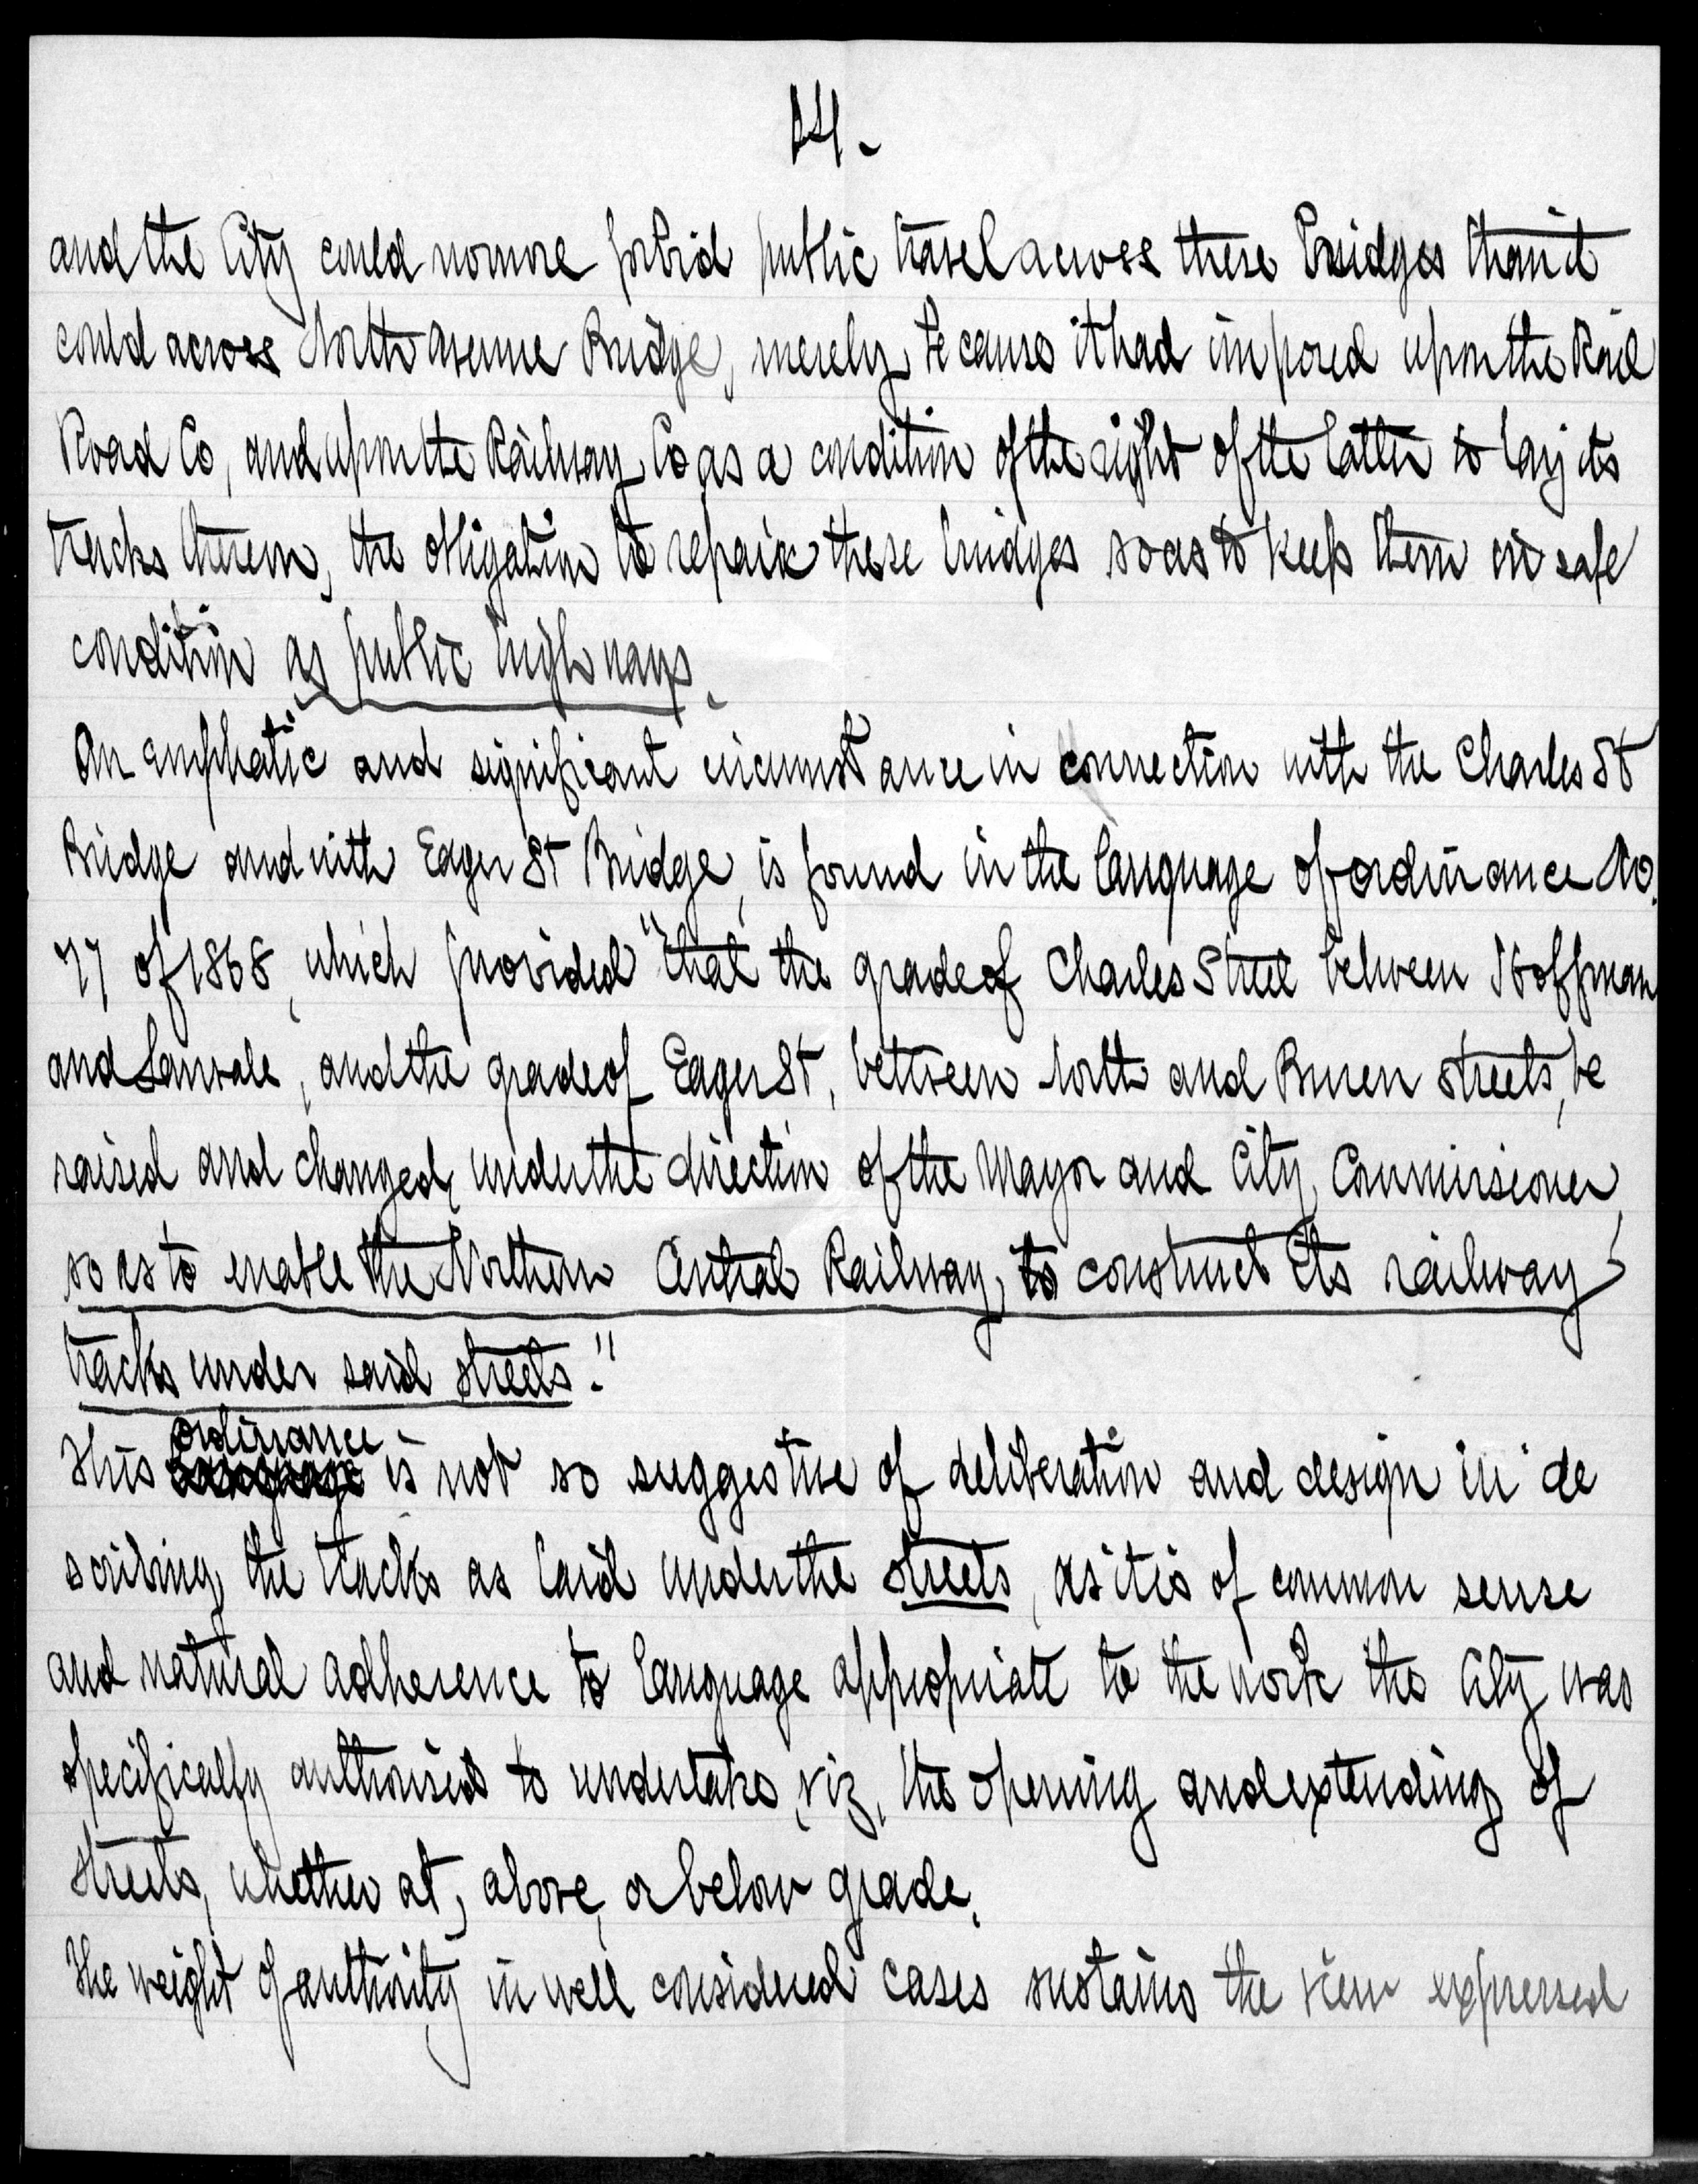 14.
and the City could no more forbid public travel across these Bridges than it
could across North Avenue Bridge, merely because it had imposed upon the Rail
Road Co, and upon the Railway Co as a condition of the right of the latter to lay its
tracks thereon, the obligation to repair these bridges so as to keep them in safe
condition as public highways.
An emphatic and significant circumstance in connection with the Charles St
Bridge and with Eager St Bridge, is found in the language of ordinance No.
77 of 1868, which provided "that the grade of Charles Street between Hoffman
and Lanvale, and the grade of Eager St, between North and Buren streets, be
raised and changed, under the direction of the Mayor and City Commissioner,
so as to enable the Northern Central Railway, to construct its railway
tracks under said streets."
This ordinance is not so suggestive of deliberation and design in de
scribing the tracks as laid under the streets, as it is of common sense
and natural adherence to language appropriate to the work the City was
specifically authorised to undertake, viz, the opening and extending of
streets, whether at, above, or below grade.
The weight of authority in well considered cases sustains the view expressed